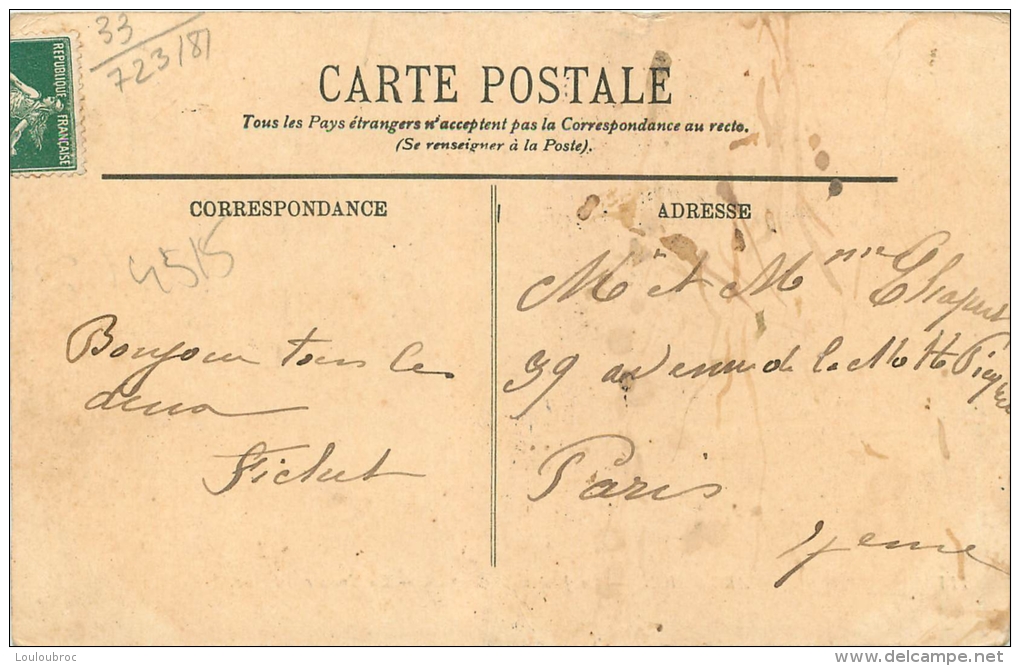 33
723/81
REPUBLIQUE FRANÇAISE
CARTE POSTALE
Tous les Pays étrangers n'acceptent pas la Correspondance au recto.
(Se renseigner à la Poste).
CORRESPONDANCE
4515
Bonjour tous les
deux
Fichet
ADRESSE
M et Mme
39 avenue de la Motte Picquet
Paris
7eme
Louloubroc
www.delcampe.net